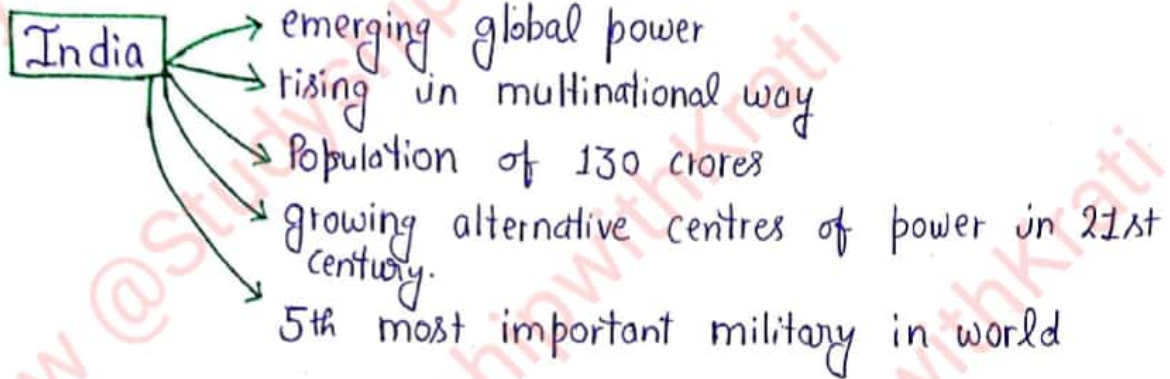 India
emerging global power
rising in multinational way
Population of 130 crores
growing alternative centres of power in 21st
century.
5th most important military in world